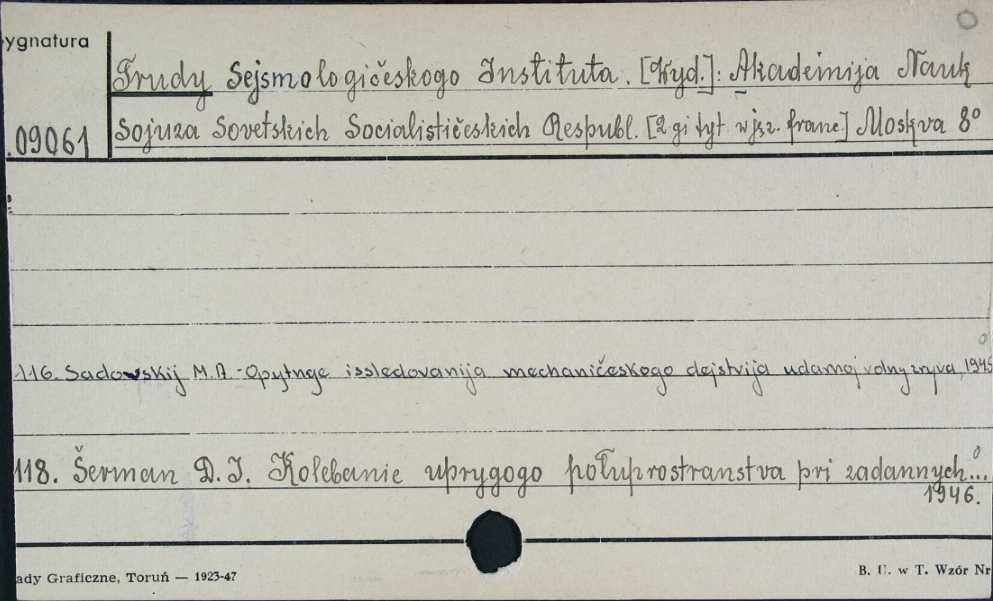 ygnatura
Trudy Sejsmologičeskogo Instituta. [Wyd.]: Akademija Nauk
.09061 Sojuza Sovetskich Socialističeskich Respubl. [2 gi tyt. w jęz. franc] Moskva 8°
116. Sadowskij M.A. - Opytnge issledovanija mechaničeskogo dejstvija udarnoj volny 1945
118. Šerman D.I. Kolebanie uprygogo połuprostranstva pri zadannych...
1946.
ady Graficzne, Toruń — 1923-47
B. U. w T. Wzór Nr